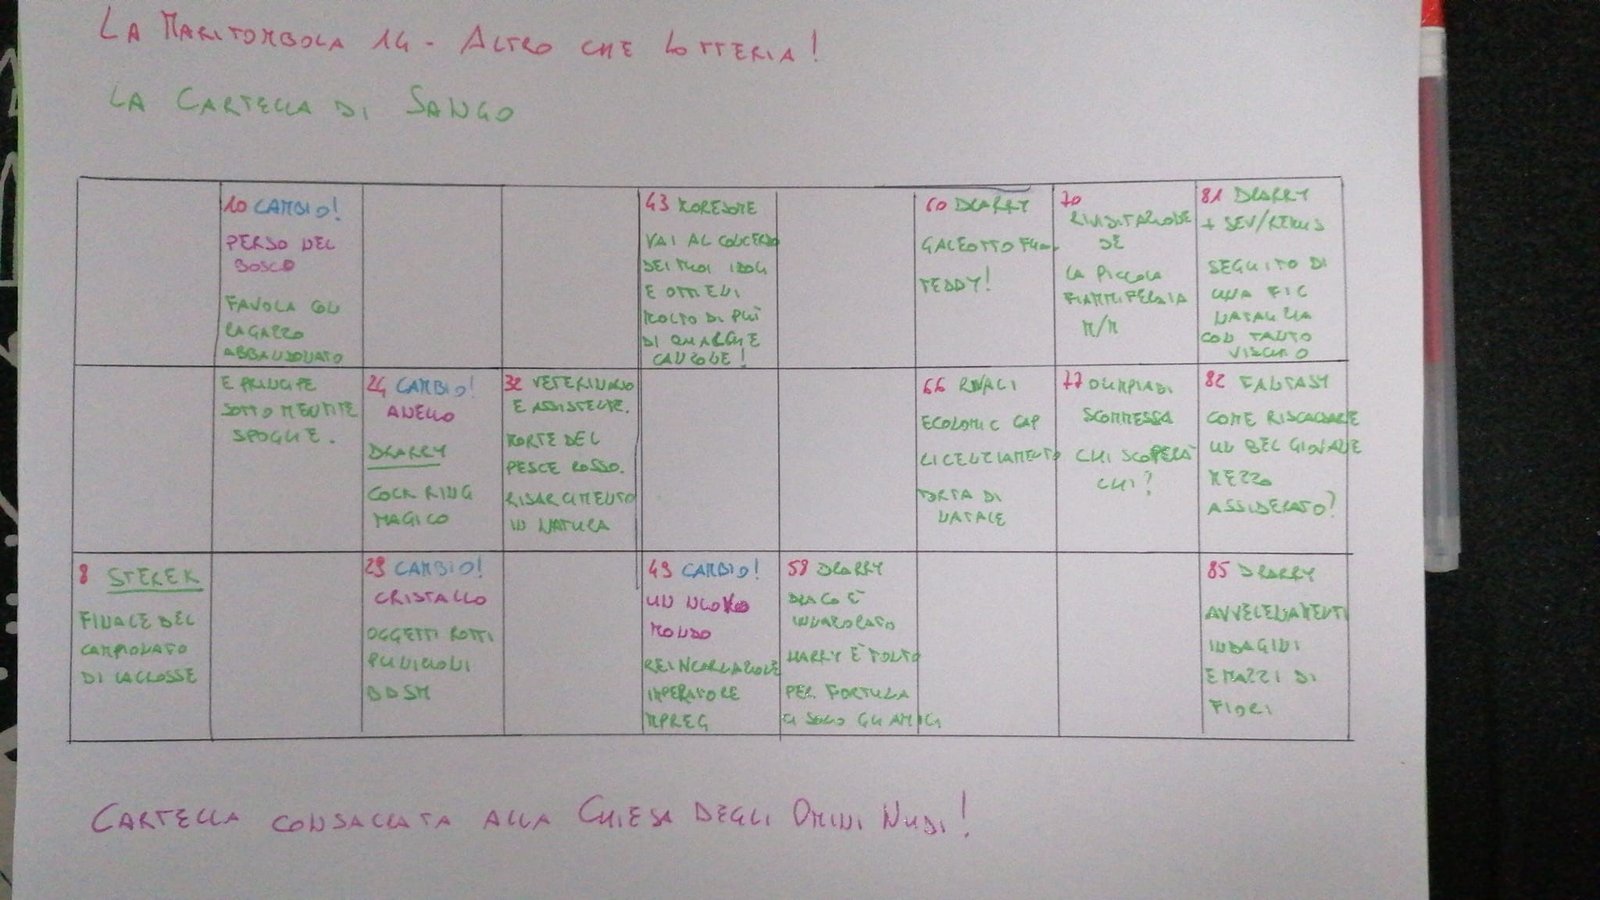 LA MARITOMBOLA 14 - ALTRO CHE LOTTERIA!
LA CARTELLA DI SANGO
10 CAMBIO!
PERSO NEL
BOSCO
FAVOLA CON
RAGAZZO
ABBANDONATO
43 MORESOME
VAI AL CONCERTO
DEI TUOI IDOLI
E OTTIENI
MOLTO DI PIÙ
DI QUALCHE
CANZONE!
60 DRARRY
GALEOTTO FU
TEDDY!
70
RIVISITAZIONE
DE
LA PICCOLA
FIAMMIFERAIA
M/M
81 DRARRY
+ SEV/REMUS
SEGUITO DI
UNA FIC
NATALIZIA
CON TANTO
VISCHIO
E PRINCIPE
SOTTO MENTITE
SPOGLIE.
24 CAMBIO!
ANELLO
DRARRY
COCK RING
MAGICO
32 VETERINARIO
E ASSISTENTE.
MORTE DEL
PESCE ROSSO.
RISARCIMENTO
IN NATURA
66 RIVALI
ECONOMIC CAP
LICENZIAMENTO
TORTA DI
NATALE
77 OLIMPIADI
SCOMMESSA
CHI SCOPERÀ
CHI?
82 FANTASY
COME RISCALDARE
UN BEL GIOVANE
MEZZO
ASSIDERATO?
8 STEREK
FINALE DEL
CAMPIONATO
DI LACROSSE
29 CAMBIO!
CRISTALLO
OGGETTI ROTTI
PUNIZIONI
BDSM
49 CAMBIO!
UN NUOVO
MONDO
REINCARNAZIONE
IMPERATORE
MPREG
58 DRARRY
DRACO È
INNAMORATO
HARRY È TONTO
PER FORTUNA
CI SONO GLI AMICI
85 DRARRY
AVVELENAMENTI
INDAGINI
E MAZZI DI
FIORI
CARTELLA CONSACRATA ALLA CHIESA DEGLI OMINI NUDI!